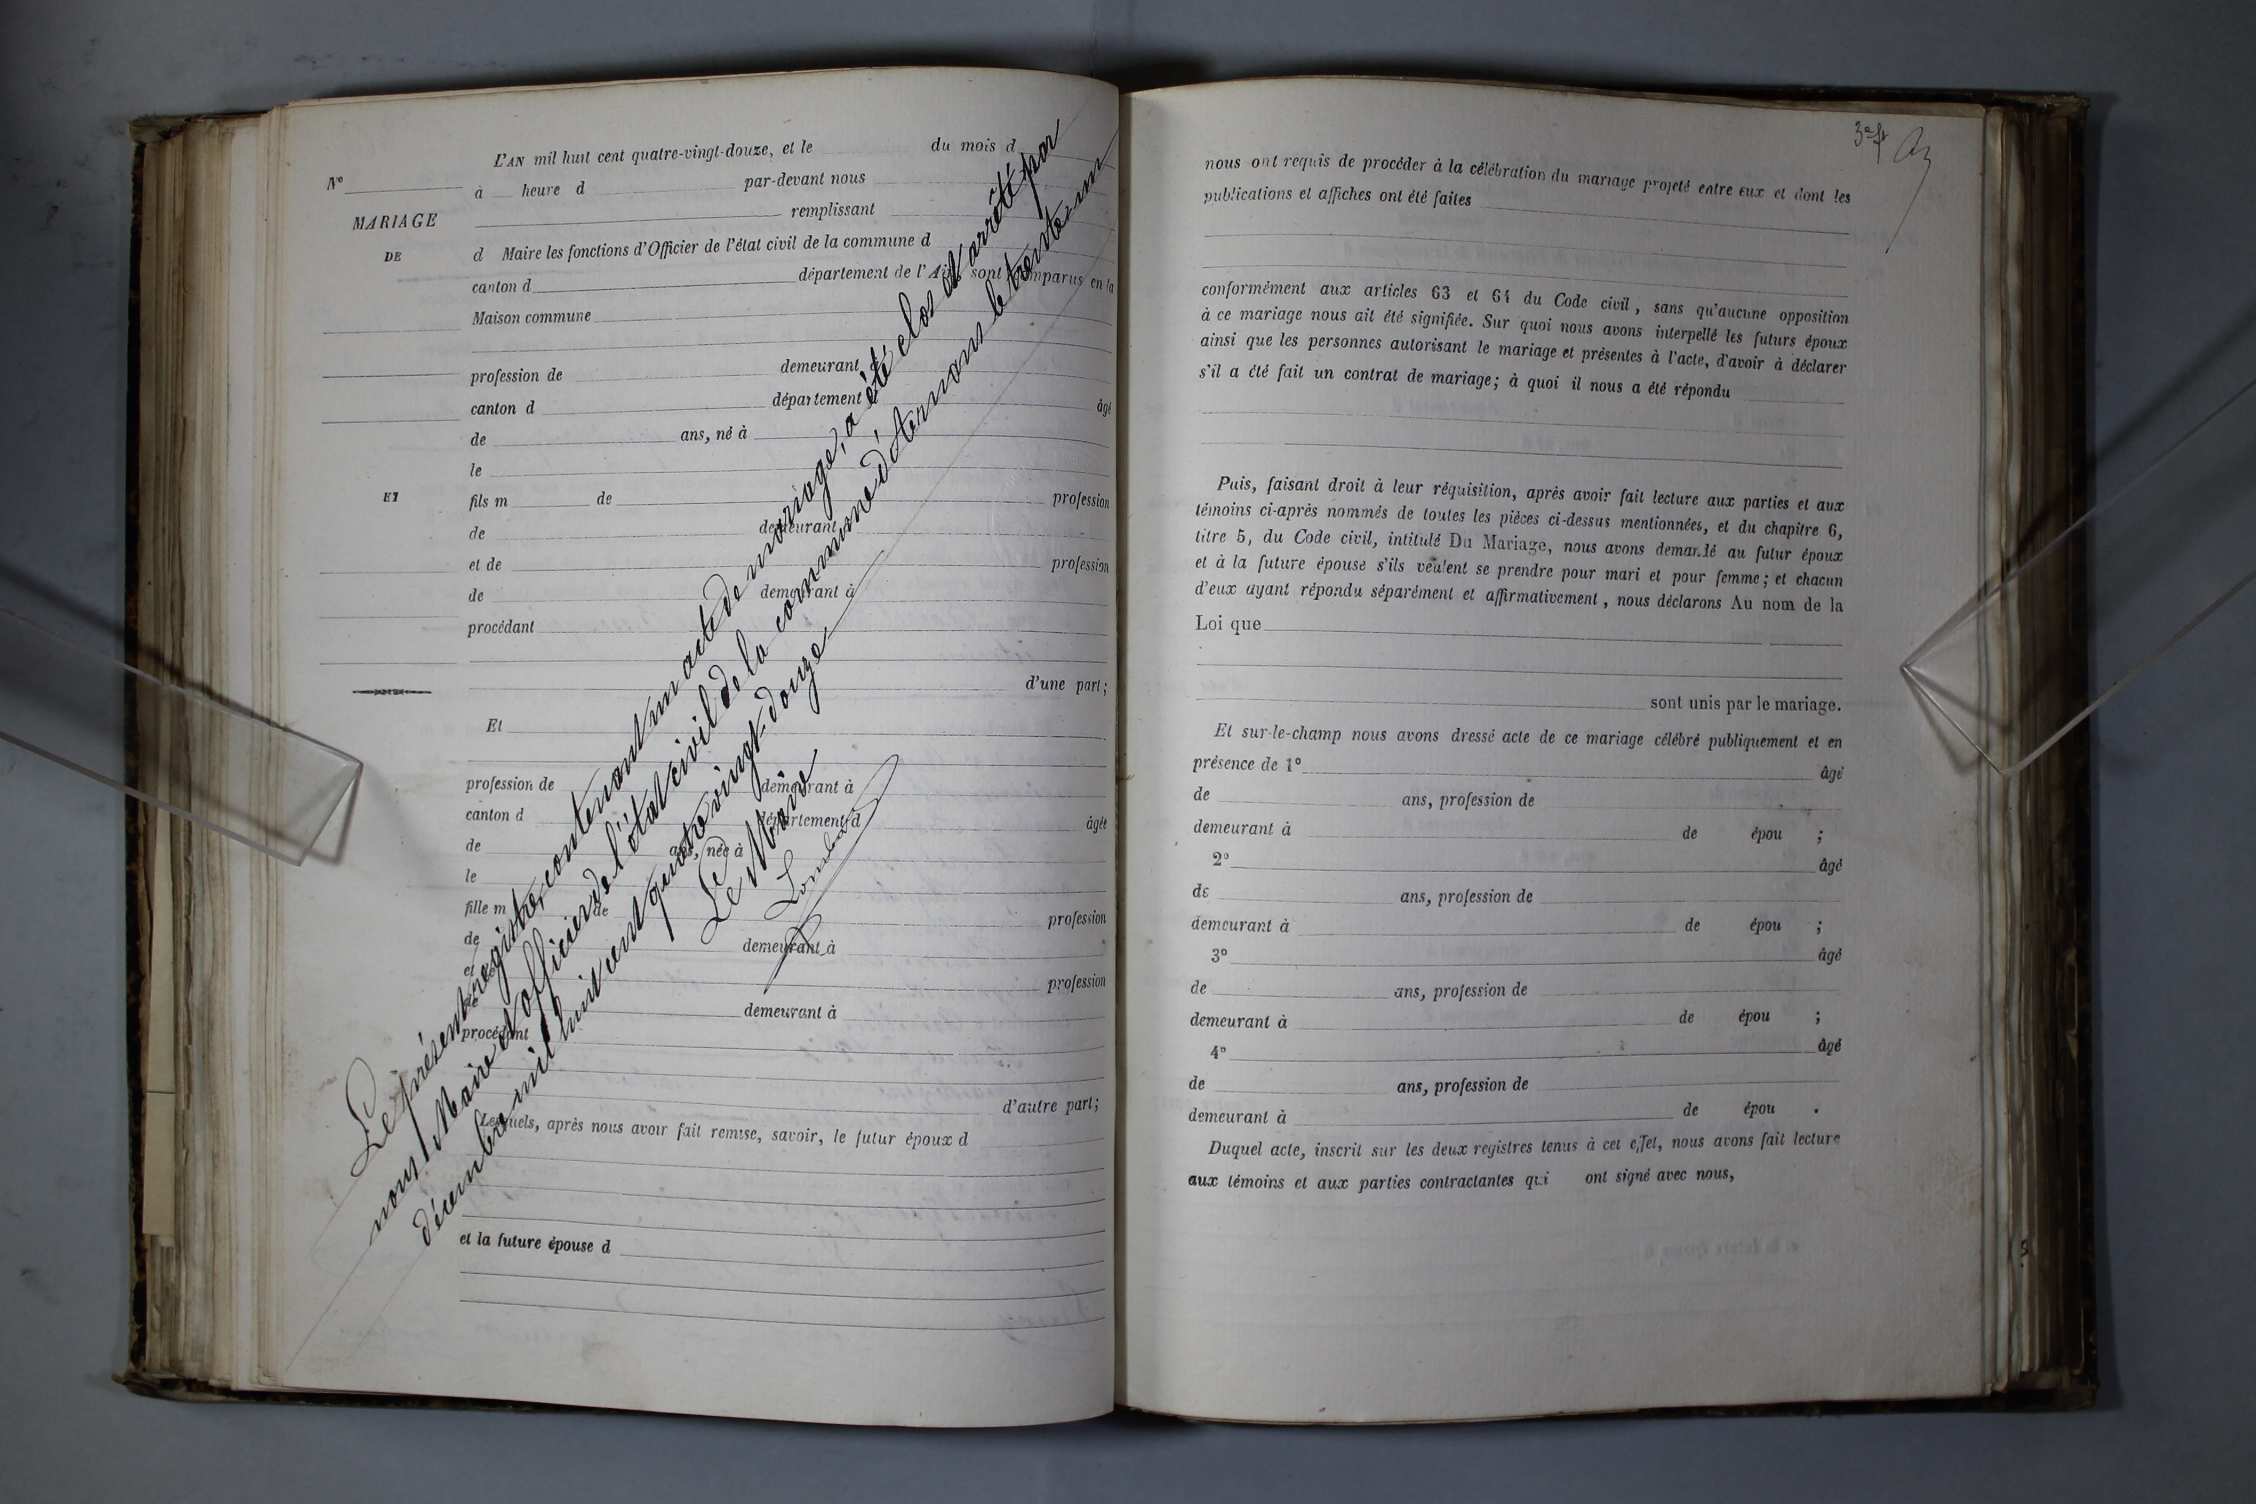 L'AN mil huit cent quatre-vingt-douze, et le du mois d
N° à heure d par-devant nous
MARIAGE remplissant
DE d Maire les fonctions d'Officier de l'état civil de la commune d
canton d département de l'Ain sont comparus en la
Maison commune
profession de demeurant à
canton d département d âgé
de ans, né à
le
ET fils m de profession
de demeurant
et de profession
de demeurant à
procédant
d'une part;
Et
profession de demeurant à
canton d département d âgée
de ans, née à
le
fille m de profession
de demeurant à
et de profession
de demeurant à
procédant
d'autre part;
Lesquels, après nous avoir fait remise, savoir, le futur époux d
et la future épouse d
Le présent registre, contenant un acte de mariage, a été clos et arrêté par
nous, Maire et officier de l'état civil de la commune d'Aternans le trente-un
décembre mil huit cent quatre vingt-douze
Le Maire
3e ft
nous ont requis de procéder à la célébration du mariage projeté entre eux et dont les
publications et affiches ont été faites
conformément aux articles 63 et 64 du Code civil, sans qu'aucune opposition
à ce mariage nous ait été signifiée. Sur quoi nous avons interpellé les futurs époux
ainsi que les personnes autorisant le mariage et présentes à l'acte, d'avoir à déclarer
s'il a été fait un contrat de mariage; à quoi il nous a été répondu
Puis, faisant droit à leur réquisition, après avoir fait lecture aux parties et aux
témoins ci-après nommés de toutes les pièces ci-dessus mentionnées, et du chapitre 6,
titre 5, du Code civil, intitulé Du Mariage, nous avons demandé au futur époux
et à la future épouse s'ils veulent se prendre pour mari et pour femme; et chacun
d'eux ayant répondu séparément et affirmativement, nous déclarons Au nom de la
Loi que
sont unis par le mariage.
Et sur-le-champ nous avons dressé acte de ce mariage célébré publiquement et en
présence de 1° âgé
de ans, profession de
demeurant à de épou ;
2° âgé
de ans, profession de
demeurant à de épou ;
3° âgé
de ans, profession de
demeurant à de épou ;
4° âgé
de ans, profession de
demeurant à de épou .
Duquel acte, inscrit sur les deux registres tenus à cet effet, nous avons fait lecture
aux témoins et aux parties contractantes qui ont signé avec nous,